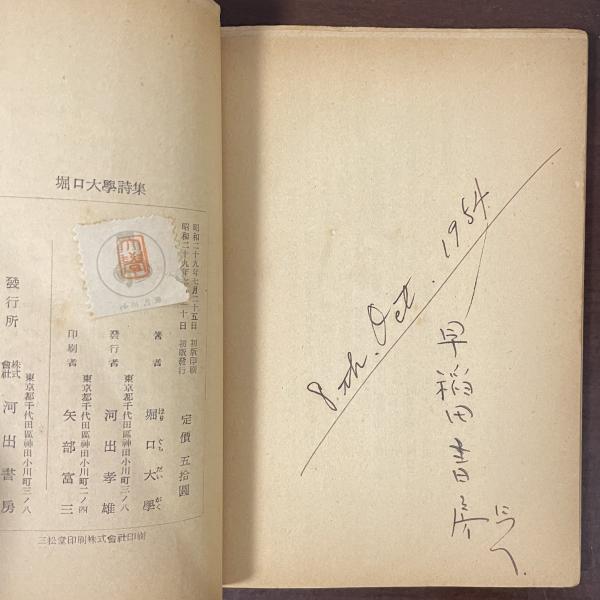 堀口大學詩集
昭和二十九年七月二十五日 初版印刷
昭和二十九年七月三十日 初版發行
定價 五拾圓
著者 堀口大學
ほりぐちだいがく
東京都千代田區神田小川町三ノ八
發行者 河出孝雄
東京都千代田區神田小川町二ノ四
印刷者 矢部富三
東京都千代田區神田小川町三ノ八
發行所 株式會社 河出書房
三松堂印刷株式會社印刷
8.th. Oct. 1954.
早稲田
にて.